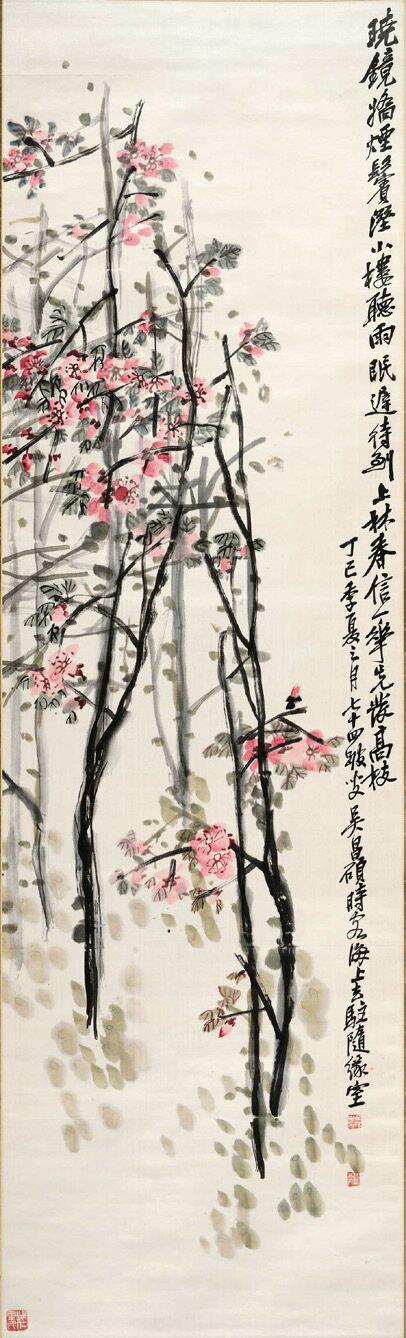 曉鏡描煙鬢影溼小樓聽雨眠遲待到上林春信一華先發高枝
丁巳季夏之月七十四跛叟吳昌碩時客海上去駐隨緣室